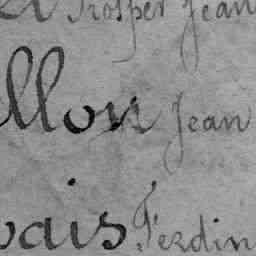 Prosper Jean
llon Jean
vais Ferdin